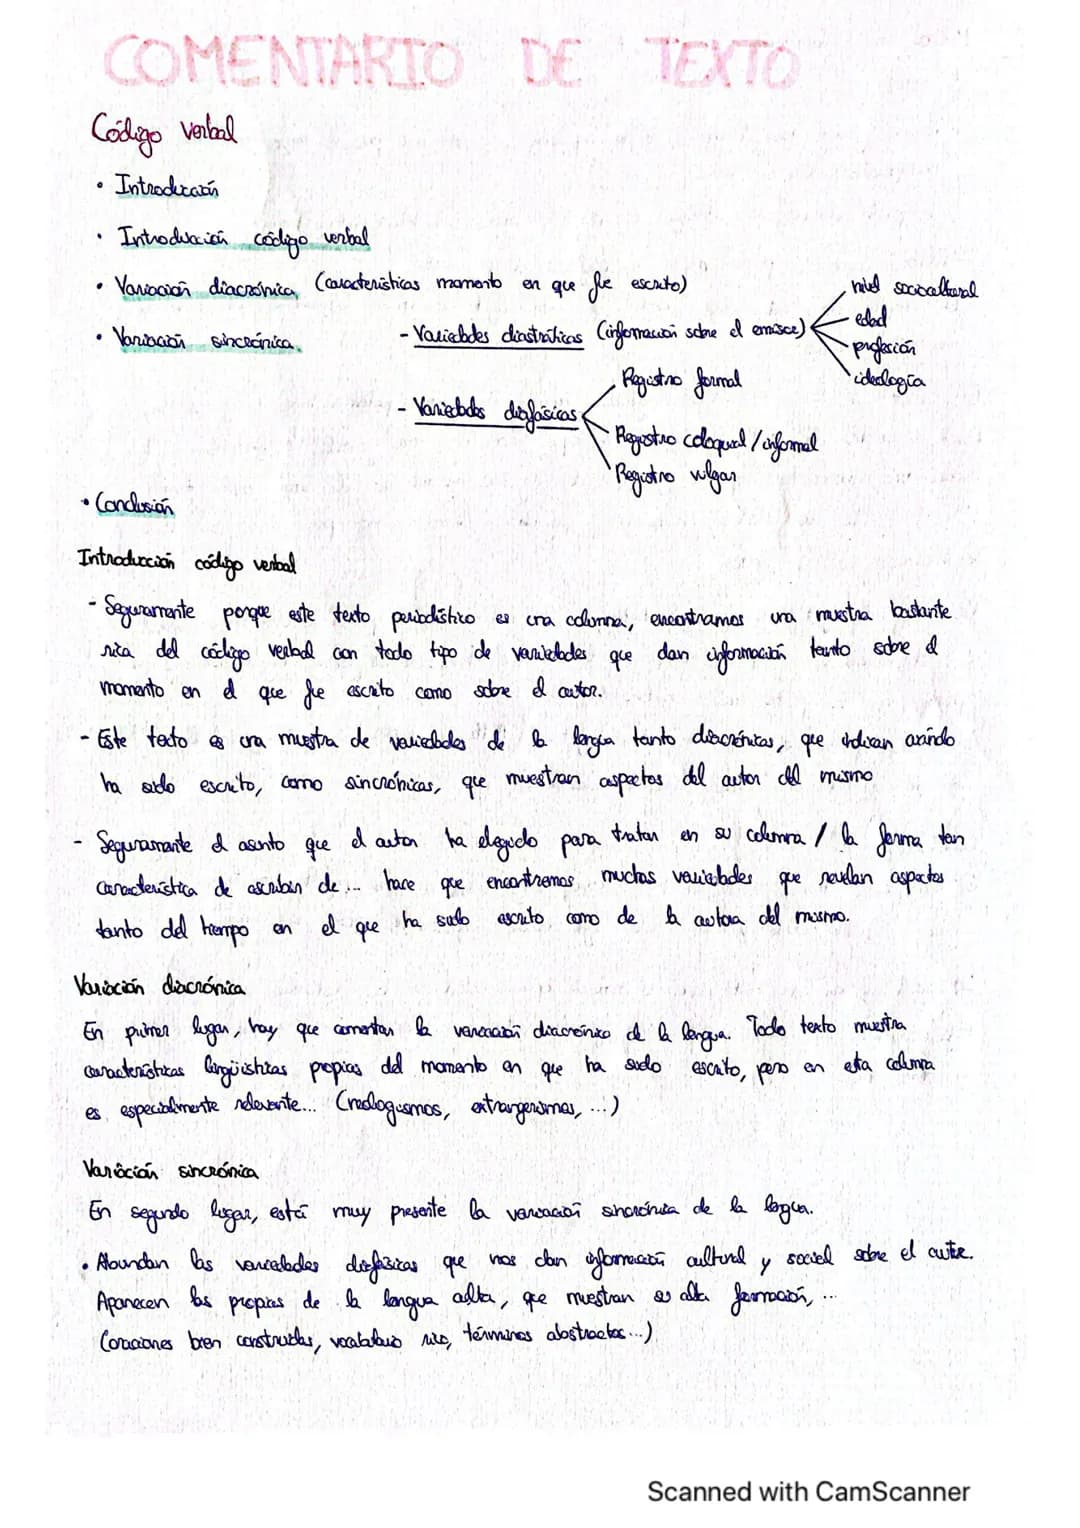 COMENTARIO DE TEXTO
Código verbal
• Introducción
• Introducción código verbal
• Variación diacrónica (características momento en que fue escrito)
• Variación sincrónica
- Variedades diastráticas (información sobre el emisor)
nivel sociocultural
edad
profesión
ideología
- Variedades diafásicas
Registro formal
Registro coloquial / informal
Registro vulgar
• Conclusión
Introducción código verbal
- Seguramente porque este texto periodístico es una columna, encontramos una muestra bastante
rica del código verbal con todo tipo de variedades que dan información tanto sobre el
momento en el que fue escrito como sobre el autor.
- Este texto es una muestra de variedades de la lengua tanto diacrónicas, que indican cuándo
ha sido escrito, como sincrónicas, que muestran aspectos del autor del mismo
- Seguramente el asunto que el autor ha elegido para tratar en su columna / la forma tan
característica de escribir de ... hace que encontremos muchas variedades que revelan aspectos
tanto del tiempo en el que ha sido escrito como de la autora del mismo.
Variación diacrónica
En primer lugar, hay que comentar la variación diacrónica de la lengua. Todo texto muestra
características lingüísticas propias del momento en que ha sido escrito, pero en esta columna
es especialmente relevante... (neologismos, extrangerismos, ...)
Variación sincrónica
En segundo lugar, está muy presente la variación sincrónica de la lengua.
• Abundan las variedades diafásicas que nos dan información cultural y social sobre el autor.
Aparecen las propias de la lengua culta, que muestran su alta formación, ...
(oraciones bien construidas, vocabulario rico, términos abstractos...)
Scanned with CamScanner